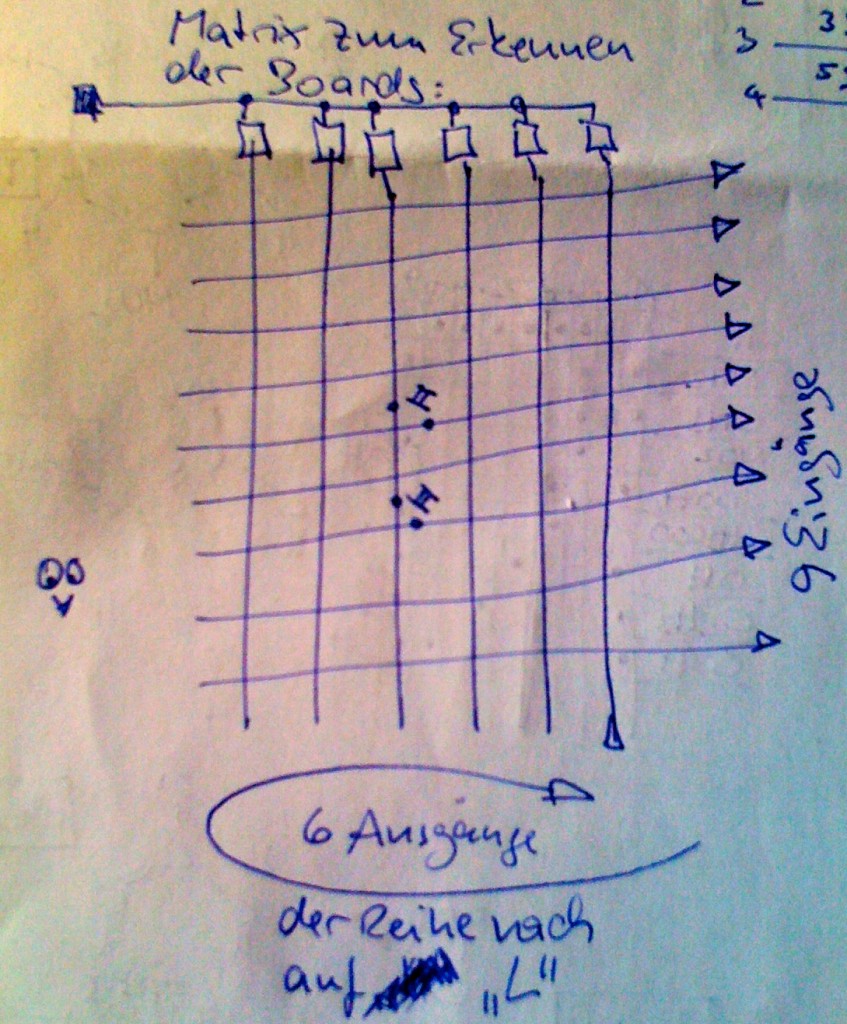 Matrix zum Erkennen
der Boards:
3
4
9 Eingänge
6 Ausgänge
der Reihe nach
auf „L“